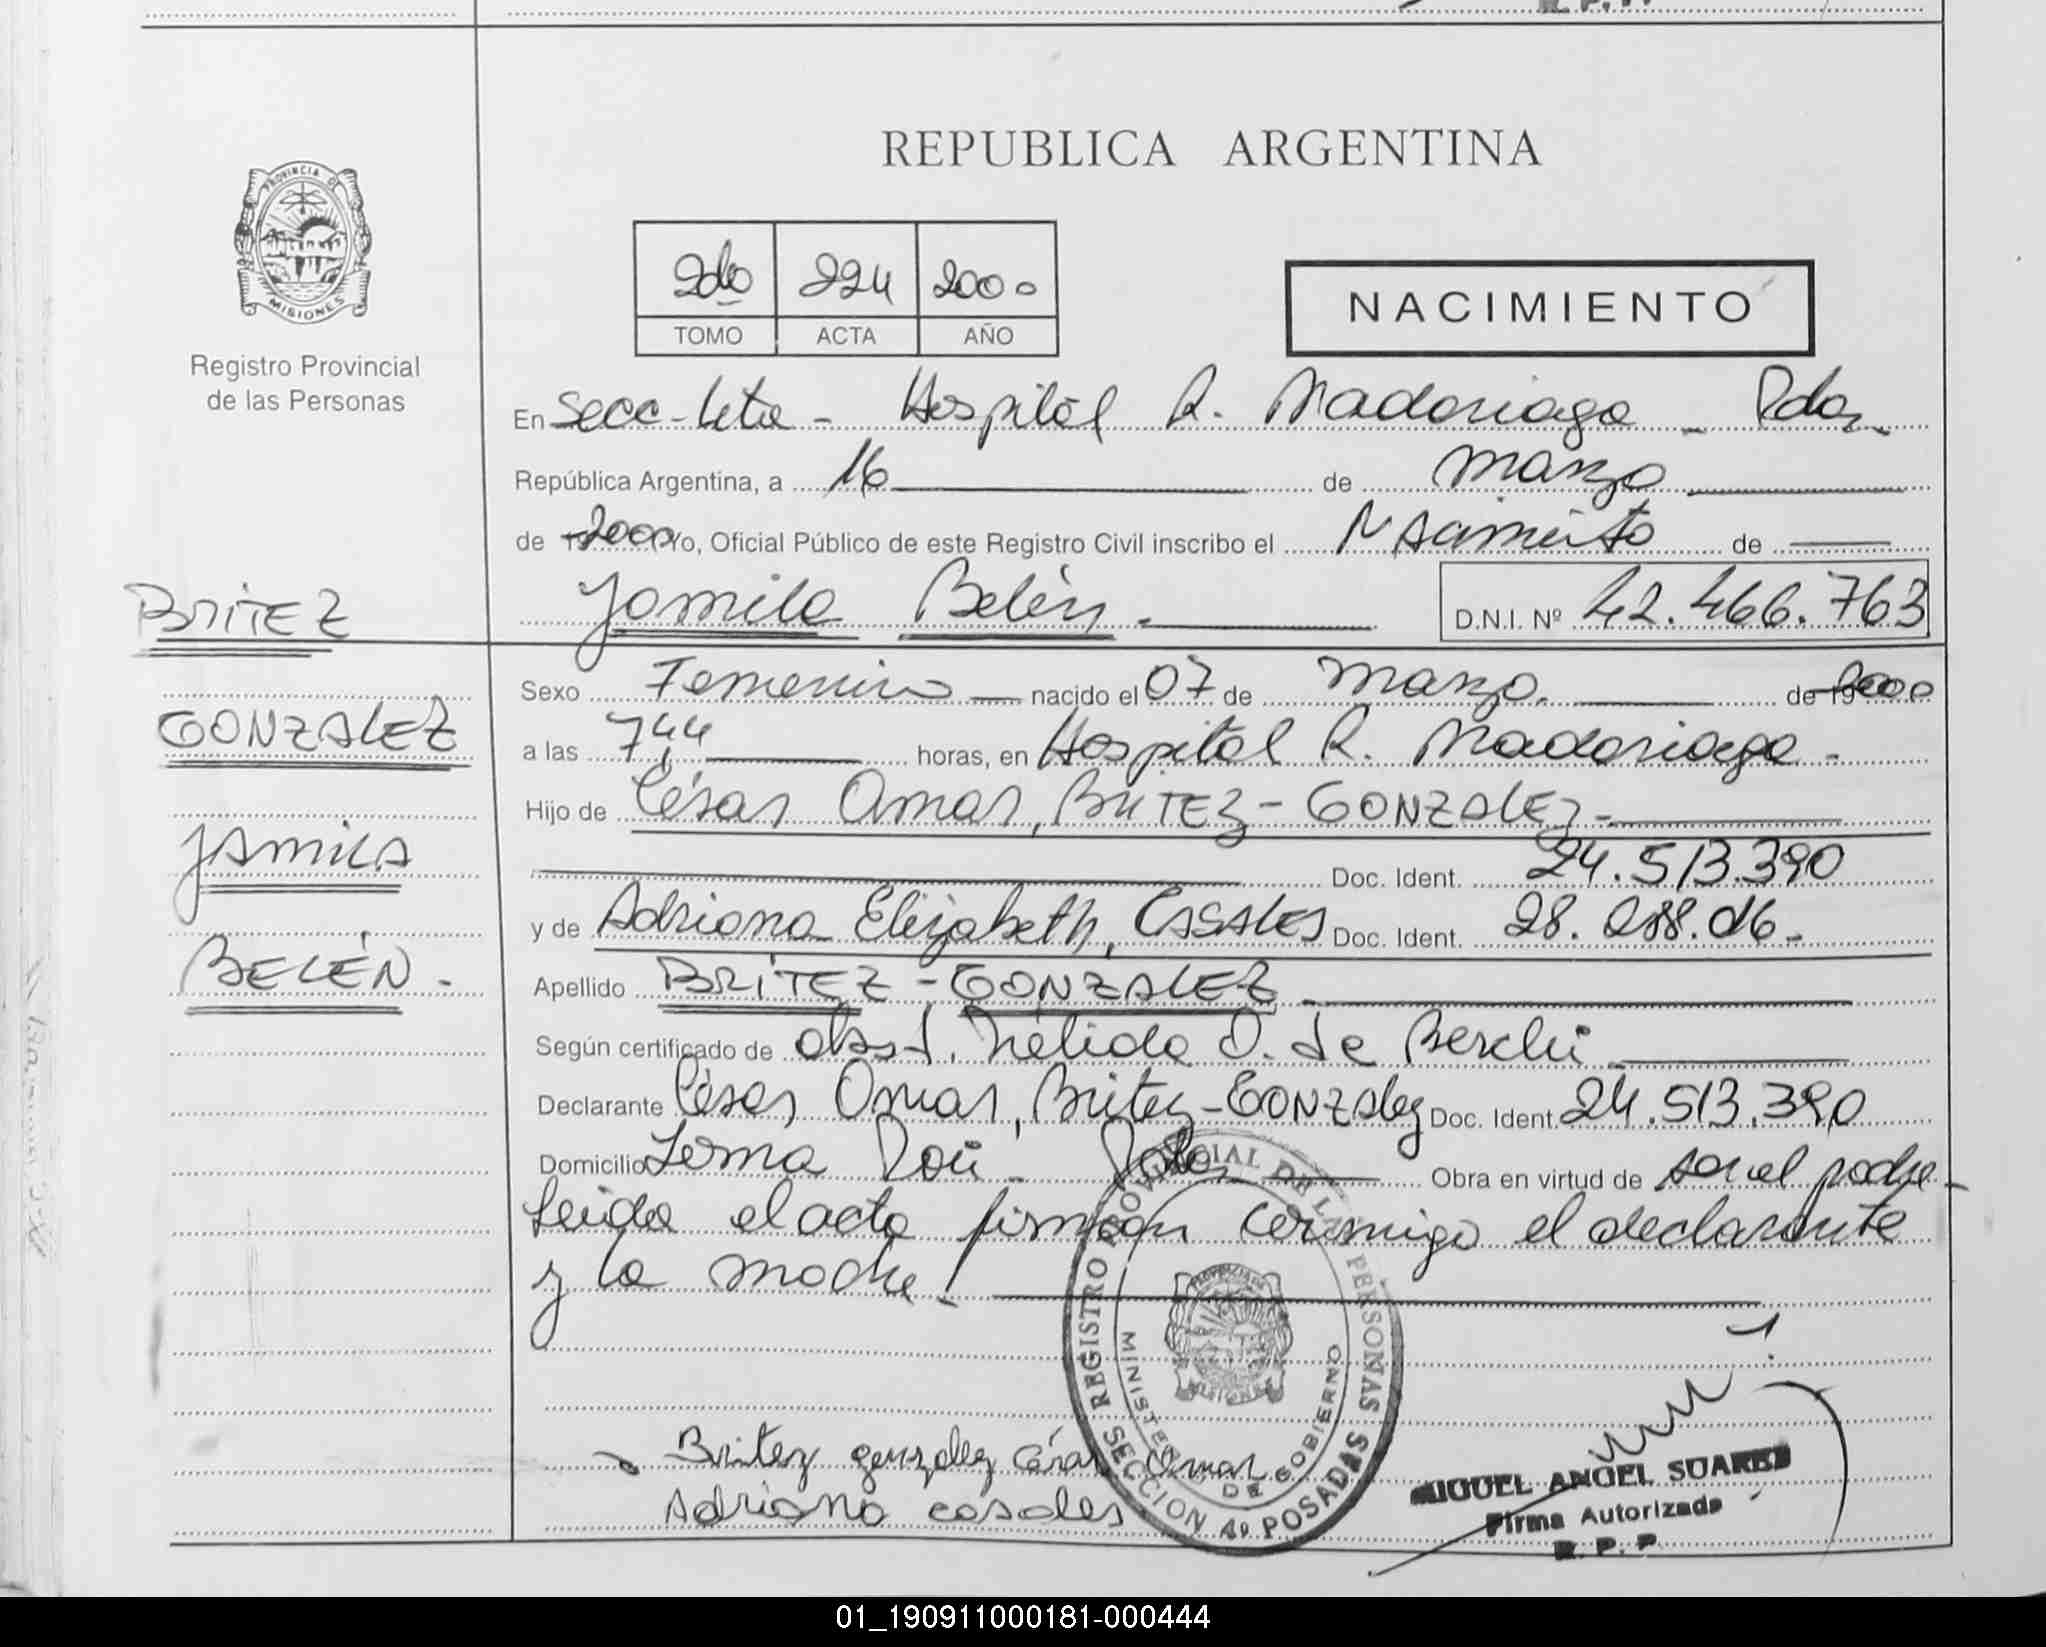 REPUBLICA ARGENTINA
PROVINCIA DE
MISIONES
Registro Provincial
de las Personas
2do 224 2000
TOMO ACTA AÑO
NACIMIENTO
En Secc-4ta - Hospital R. Madariaga - Pdas
República Argentina, a 16 de marzo
de 2000 Yo, Oficial Público de este Registro Civil inscribo el Nacimiento de
BRITEZ
Jamila Belén - D.N.I. Nº 42.466.763
Sexo Femenino nacido el 07 de marzo. de 19 2000
GONZALEZ
a las 7,44 horas, en Hospital R. Madariaga -
Hijo de César Omar, BRITEZ - GONZALEZ -
JAMILA
Doc. Ident. 24.513.390
y de Adriana Elizabeth, CASALES Doc. Ident. 28.
BELÉN -
Apellido BRITEZ - GONZALEZ
Según certificado de obst. Nélida O. de
Declarante César Omar, Britez-GONZALez Doc. Ident. 24.513.390
Domicilio Pdas Obra en virtud de ser el padre -
Leida el acta firman conmigo el declarante
y la madre -
REGISTRO PROVINCIAL DE LAS PERSONAS
MINISTERIO DE GOBIERNO
SECCION 4º POSADAS
Britez gonzalez César Omar
Adriana casales
MIGUEL ANGEL SUAREZ
Firma Autorizada
R. P. P.
01_190911000181-000444